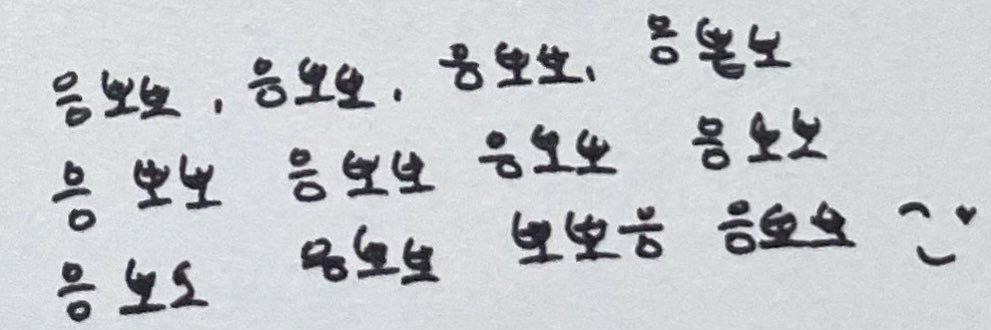 응보보, 응보보, 응보보, 응본보
응 보보 응보보 응보보 응보보
응 보오 응보보 보보응 응보보